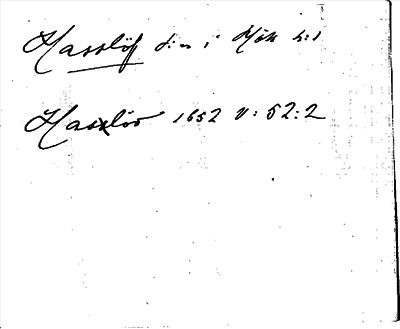 Hasslöf d:o i Hök h:d
Hasslöv 1652 v: 52:2